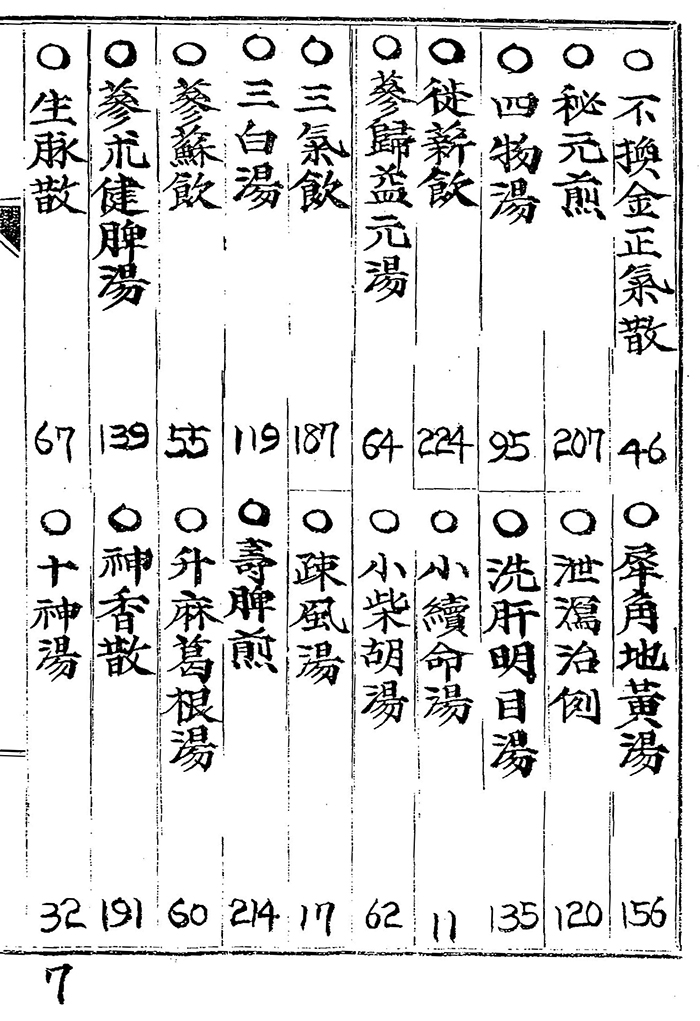 ○不換金正氣散 46
○秘元煎 207
○四物湯 95
○徙薪飮 224
○蔘歸益元湯 64
○三氣飮 187
○三白湯 119
○蔘蘇飮 55
○蔘朮健脾湯 139
○生脉散 67
○犀角地黃湯 156
○泄瀉治例 120
○洗肝明目湯 135
○小續命湯 11
○小柴胡湯 62
○疎風湯 17
○壽脾煎 214
○升麻葛根湯 60
○神香散 191
○十神湯 32
7